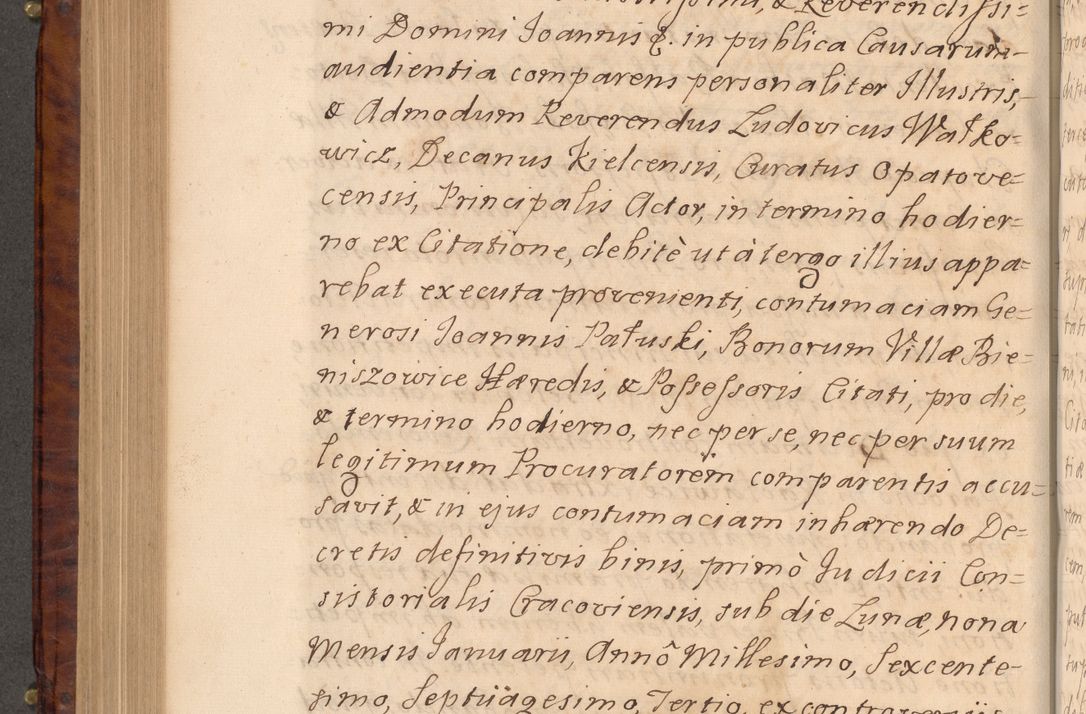 & Reverendissi=
mi Domini Joannis &. in publica Causarum
audientia comparens personaliter Illustris,
& Admodum Reverendus Ludovicus Wałko=
wicz, Decanus Kielcensis, Curatus Opatove=
censis, Principalis Actor, in termino hodier=
no ex Citatione, debitè ut à tergo illius appa=
rebat executa provenienti, contumaciam Ge=
nerosi Joannis Pałuski, Bonorum Villæ Bie=
niszowice Hæredis, & Possessoris Citati, pro die,
& termino hodierno, nec per se, nec per suum
legitimum Procuratorem comparentis accu=
savit, & in ejus contumaciam inhærendo De=
cretis definitivis binis, primò Judicii Con=
sistorialis Cracoviensis, sub die Lunæ, nona
Mensis Januarii, Annô Millesimo, Sexcente=
simo, Septuagesimo, Tertio, ex controversiis